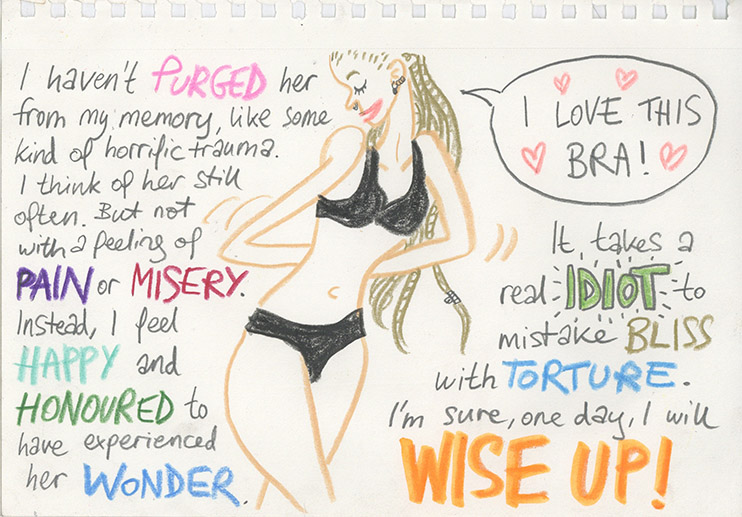 I haven't PURGED her
from my memory, like some
kind of horrific trauma.
I think of her still
often. But not
with a feeling of
PAIN or MISERY.
Instead, I feel
HAPPY and
HONOURED to
have experienced
her WONDER.
I LOVE THIS
BRA!
It takes a
real IDIOT to
mistake BLISS
with TORTURE.
I'm sure, one day, I will
WISE UP!